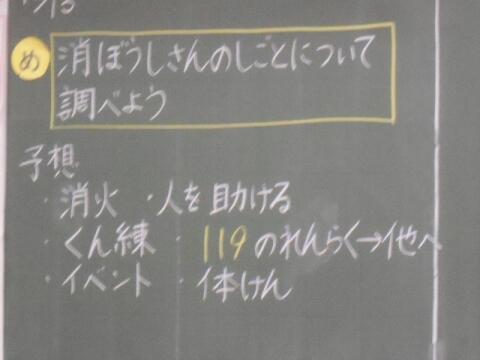 め 消ぼうしさんのしごとについて
調べよう
予想
・消火 ・人を助ける
・くん練 ・119のれんらく→他へ
・イベント ・体けん